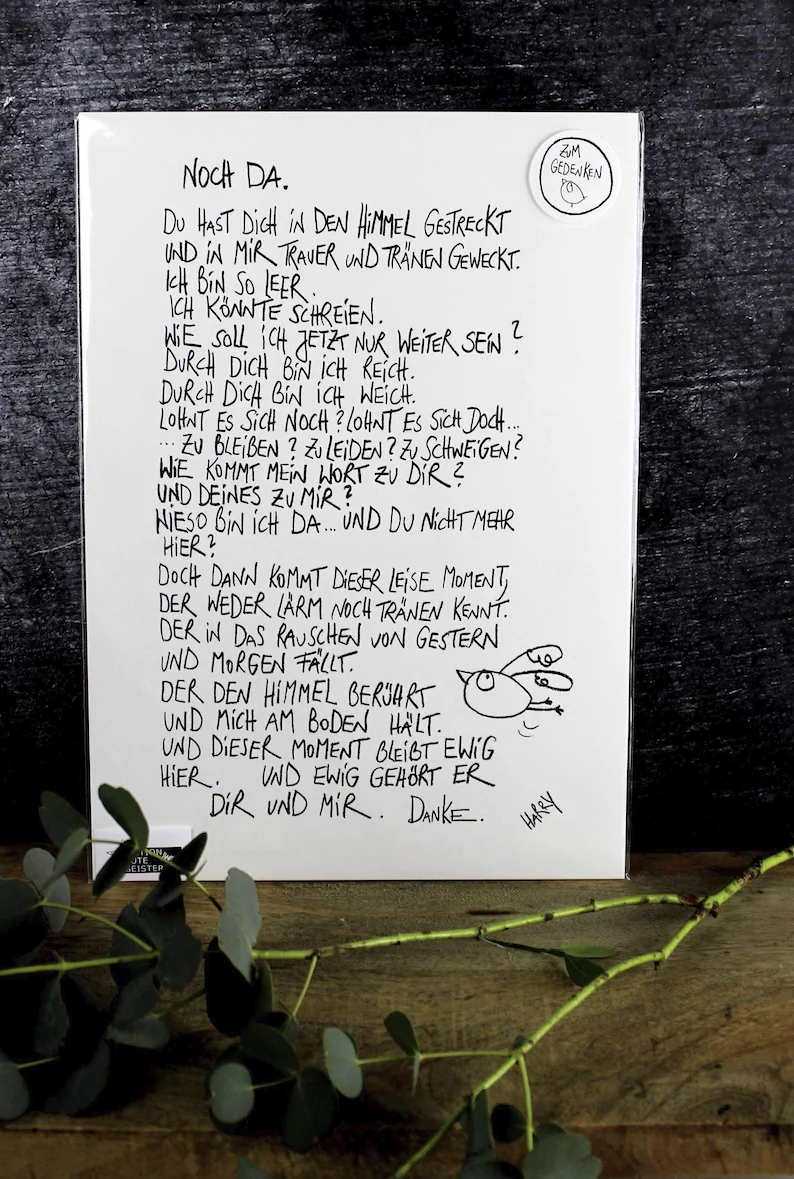 ZUM
GEDENKEN
NOCH DA.
DU HAST DICH IN DEN HIMMEL GESTRECKT
UND IN MIR TRAUER UND TRÄNEN GEWECKT.
ICH BIN SO LEER.
ICH KÖNNTE SCHREIEN.
WIE SOLL ICH JETZT NUR WEITER SEIN?
DURCH DICH BIN ICH REICH.
DURCH DICH BIN ICH WEICH.
LOHNT ES SICH NOCH? LOHNT ES SICH DOCH...
... ZU BLEIBEN? ZU LEIDEN? ZU SCHWEIGEN?
WIE KOMMT MEIN WORT ZU DIR?
UND DEINES ZU MIR?
WIESO BIN ICH DA... UND DU NICHT MEHR
HIER?
DOCH DANN KOMMT DIESER LEISE MOMENT,
DER WEDER LÄRM NOCH TRÄNEN KENNT.
DER IN DAS RAUSCHEN VON GESTERN
UND MORGEN FÄLLT.
DER DEN HIMMEL BERÜHRT
UND MICH AM BODEN HÄLT.
UND DIESER MOMENT BLEIBT EWIG
HIER. UND EWIG GEHÖRT ER
DIR UND MIR. DANKE.
HARRY